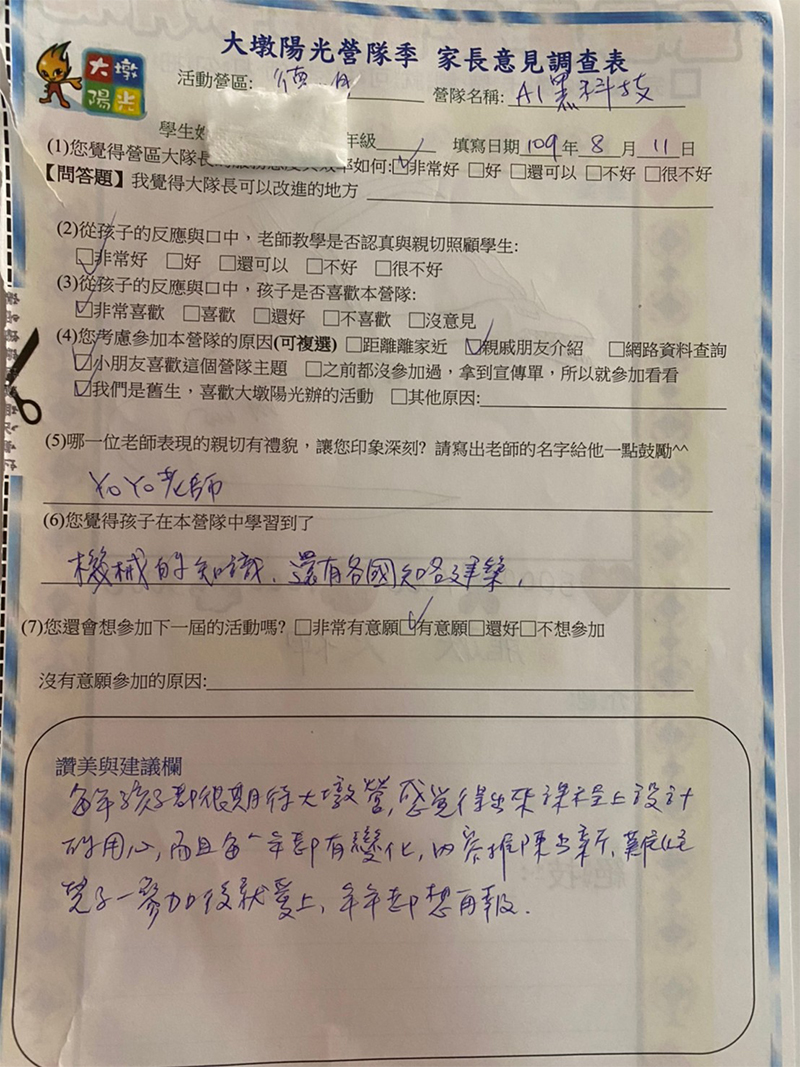 大墩陽光營隊季 家長意見調查表
大墩
陽光
活動營區: 德 營隊名稱: AI黑科技
學生姓 年級 填寫日期109年8月11日
(1)您覺得營區大隊長 率如何:☑非常好 □好 □還可以 □不好 □很不好
【問答題】我覺得大隊長可以改進的地方
(2)從孩子的反應與口中，老師教學是否認真與親切照顧學生:
☑非常好 □好 □還可以 □不好 □很不好
(3)從孩子的反應與口中，孩子是否喜歡本營隊:
☑非常喜歡 □喜歡 □還好 □不喜歡 □沒意見
(4)您考慮參加本營隊的原因(可複選) □距離離家近 ☑親戚朋友介紹 □網路資料查詢
☑小朋友喜歡這個營隊主題 □之前都沒參加過，拿到宣傳單，所以就參加看看
☑我們是舊生，喜歡大墩陽光辦的活動 □其他原因:
(5)哪一位老師表現的親切有禮貌，讓您印象深刻? 請寫出老師的名字給他一點鼓勵^^
YoYo老師
(6)您覺得孩子在本營隊中學習到了
機械的知識、還有各國知名建築,
(7)您還會想參加下一屆的活動嗎? □非常有意願☑有意願□還好□不想參加
沒有意願參加的原因:
讚美與建議欄
每年孩子都很期待大墩營,感覺得出來課程上設計
的用心,而且每個年都有變化,內容推陳出新,難怪
孩子一參加後就愛上,年年都想再報.